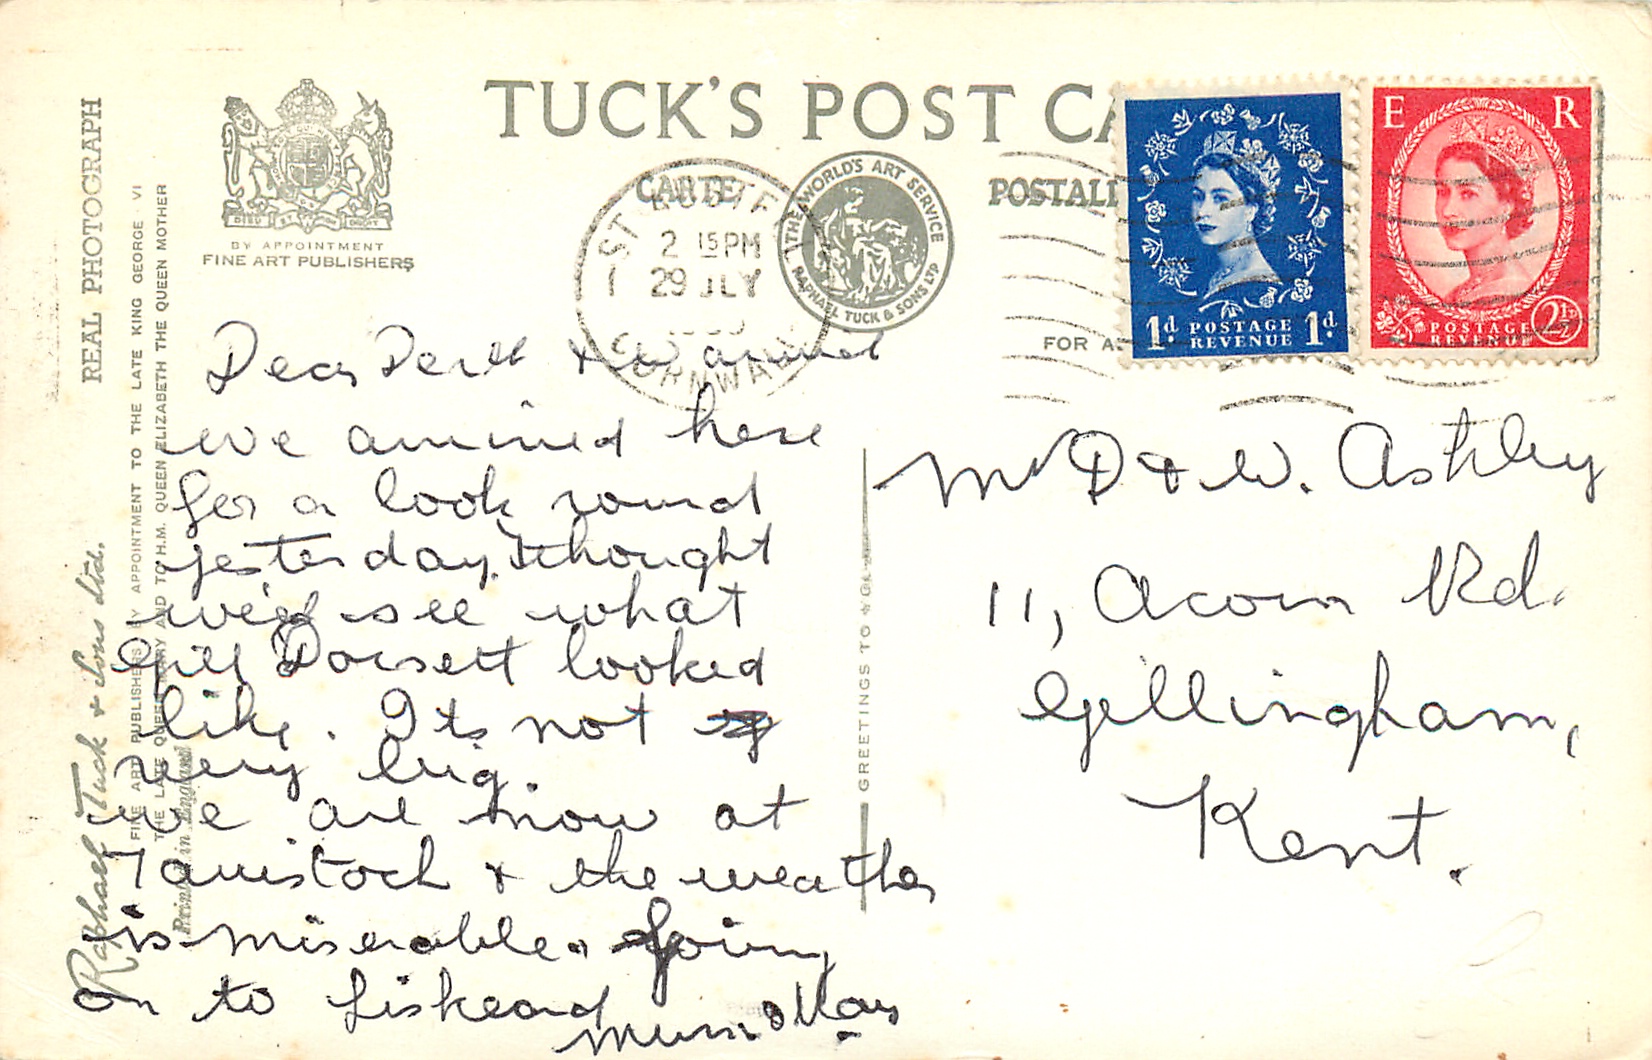 TUCK'S POST CA
CARTE POSTALE
REAL PHOTOGRAPH
BY APPOINTMENT
FINE ART PUBLISHERS
FINE ART PUBLISHERS BY APPOINTMENT TO THE LATE KING GEORGE VI
THE LATE QUEEN MARY AND TO H.M. QUEEN ELIZABETH THE QUEEN MOTHER
Raphael Tuck & Sons Ltd.
Printed in England
THE WORLD'S ART SERVICE
RAPHAEL TUCK & SONS LTD
ST AUSTELL
2 15 PM
29 JLY
CORNWALL
FOR A
1d POSTAGE 1d
REVENUE
E R
POSTAGE 2½d
REVENUE
GREETINGS TO
Dear Derek &
we arrived here
for a look round
yesterday. thought
we'd see what
Gill Dorsett looked
like. Its not
very big.
we are now at
Tavistock & the weather
is miserable. Going
on to Liskeard
Mum
Mr D & W. Ashley
11, Acorn Rd.
Gillingham,
Kent.